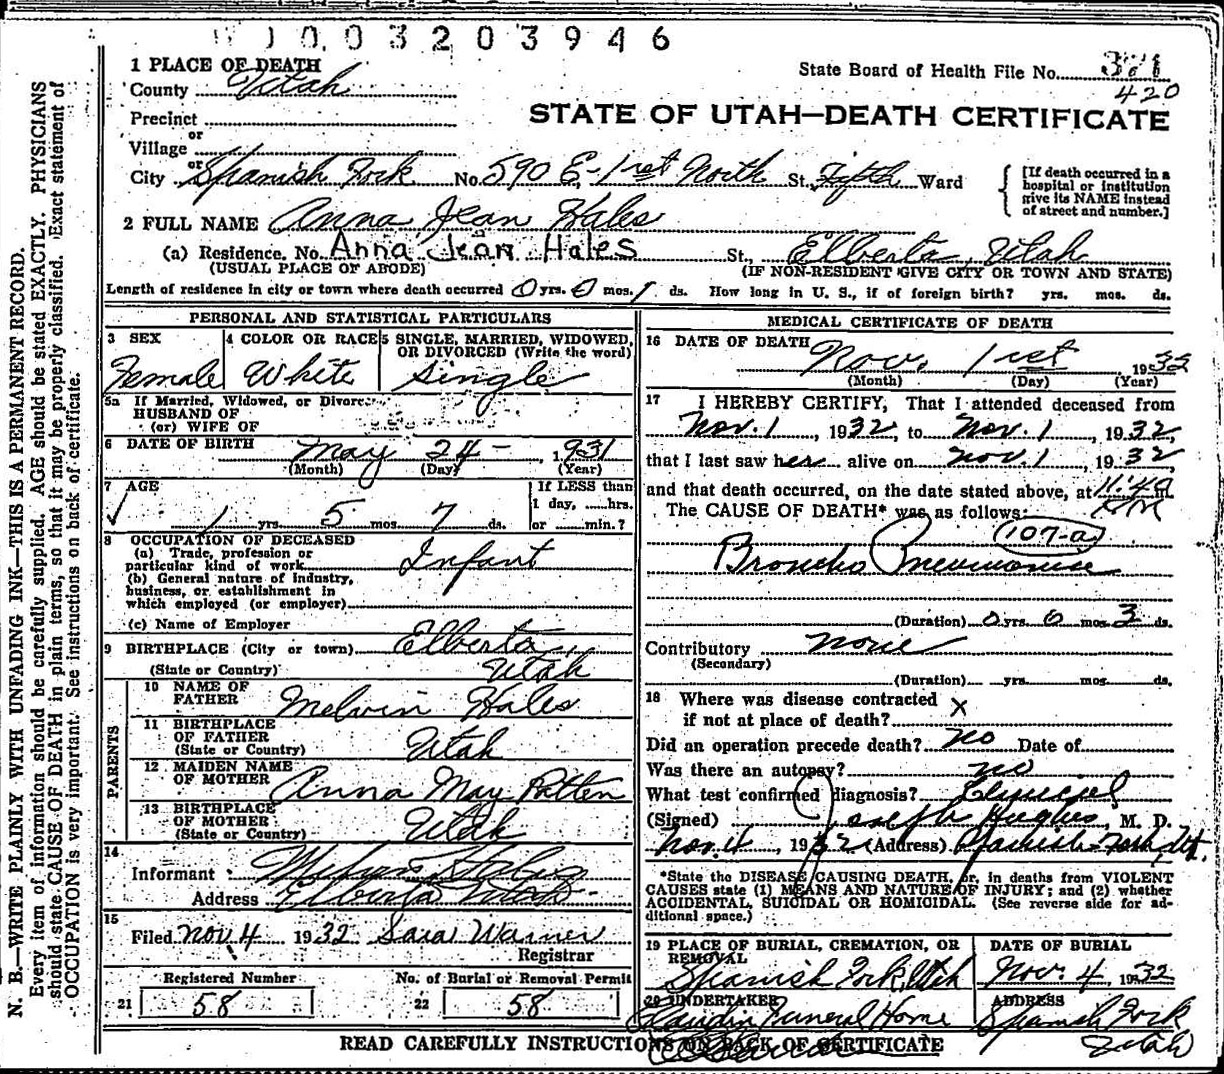 1003203946
State Board of Health File No. 371
420
1 PLACE OF DEATH
County Utah
STATE OF UTAH—DEATH CERTIFICATE
Precinct
or
Village
or
City Spanish Fork No. 590 E-1rst North St. Fifth Ward
[If death occurred in a hospital or institution give its NAME instead of street and number.]
2 FULL NAME Anna Jean Hales
(a) Residence. No. Anna Jean Hales St., Elberta, Utah
(USUAL PLACE OF ABODE) (IF NON-RESIDENT GIVE CITY OR TOWN AND STATE)
Length of residence in city or town where death occurred 0 yrs. 0 mos. 1 ds. How long in U. S., if of foreign birth? yrs. mos. ds.
PERSONAL AND STATISTICAL PARTICULARS
3 SEX Female
4 COLOR OR RACE White
5 SINGLE, MARRIED, WIDOWED, OR DIVORCED (Write the word) Single
5a If Married, Widowed, or Divorced
HUSBAND OF
(or) WIFE OF
6 DATE OF BIRTH May 24 - 1931
(Month) (Day) (Year)
7 AGE
1 yrs. 5 mos. 7 ds.
If LESS than
1 day, ......hrs.
or ......min.?
8 OCCUPATION OF DECEASED
(a) Trade, profession or
particular kind of work Infant
(b) General nature of Industry,
business, or establishment in
which employed (or employer)
(c) Name of Employer
9 BIRTHPLACE (City or town) Elberta,
(State or Country) Utah
PARENTS
10 NAME OF FATHER Melvin Hales
11 BIRTHPLACE OF FATHER (State or Country) Utah
12 MAIDEN NAME OF MOTHER Anna May Patten
13 BIRTHPLACE OF MOTHER (State or Country) Utah
14
Informant Melvin Hales
Address Elberta Utah
15
Filed Nov 4 1932 Sara Warner
Registrar
Registered Number
21 58
No. of Burial or Removal Permit
22 58
MEDICAL CERTIFICATE OF DEATH
16 DATE OF DEATH Nov. 1rst 1932
(Month) (Day) (Year)
17 I HEREBY CERTIFY, That I attended deceased from
Nov. 1, 1932, to Nov. 1, 1932,
that I last saw her alive on Nov. 1, 1932
and that death occurred, on the date stated above, at 11:40 m.
The CAUSE OF DEATH* was as follows:
107-a
Broncho Pneumonia
(Duration) 0 yrs. 0 mos. 3 ds.
Contributory none
(Secondary)
(Duration) yrs. mos. ds.
18 Where was disease contracted
if not at place of death? X
Did an operation precede death? no Date of
Was there an autopsy? no
What test confirmed diagnosis? Clinical
(Signed) Joseph Hughes, M. D.
Nov. 4, 1932 (Address) Spanish Fork, Ut.
*State the DISEASE CAUSING DEATH, or, in deaths from VIOLENT
CAUSES state (1) MEANS AND NATURE OF INJURY; and (2) whether
ACCIDENTAL, SUICIDAL OR HOMICIDAL. (See reverse side for ad-
ditional space.)
19 PLACE OF BURIAL, CREMATION, OR REMOVAL
Spanish Fork, Utah
DATE OF BURIAL
Nov. 4, 1932
20 UNDERTAKER
Claudin Funeral Home
ADDRESS
Spanish Fork
Utah
READ CAREFULLY INSTRUCTIONS ON BACK OF CERTIFICATE
N. B.—WRITE PLAINLY WITH UNFADING INK—THIS IS A PERMANENT RECORD.
Every item of information should be carefully supplied. AGE should be stated EXACTLY. PHYSICIANS
should state CAUSE OF DEATH in plain terms, so that it may be properly classified. Exact statement of
OCCUPATION is very important. See instructions on back of certificate.